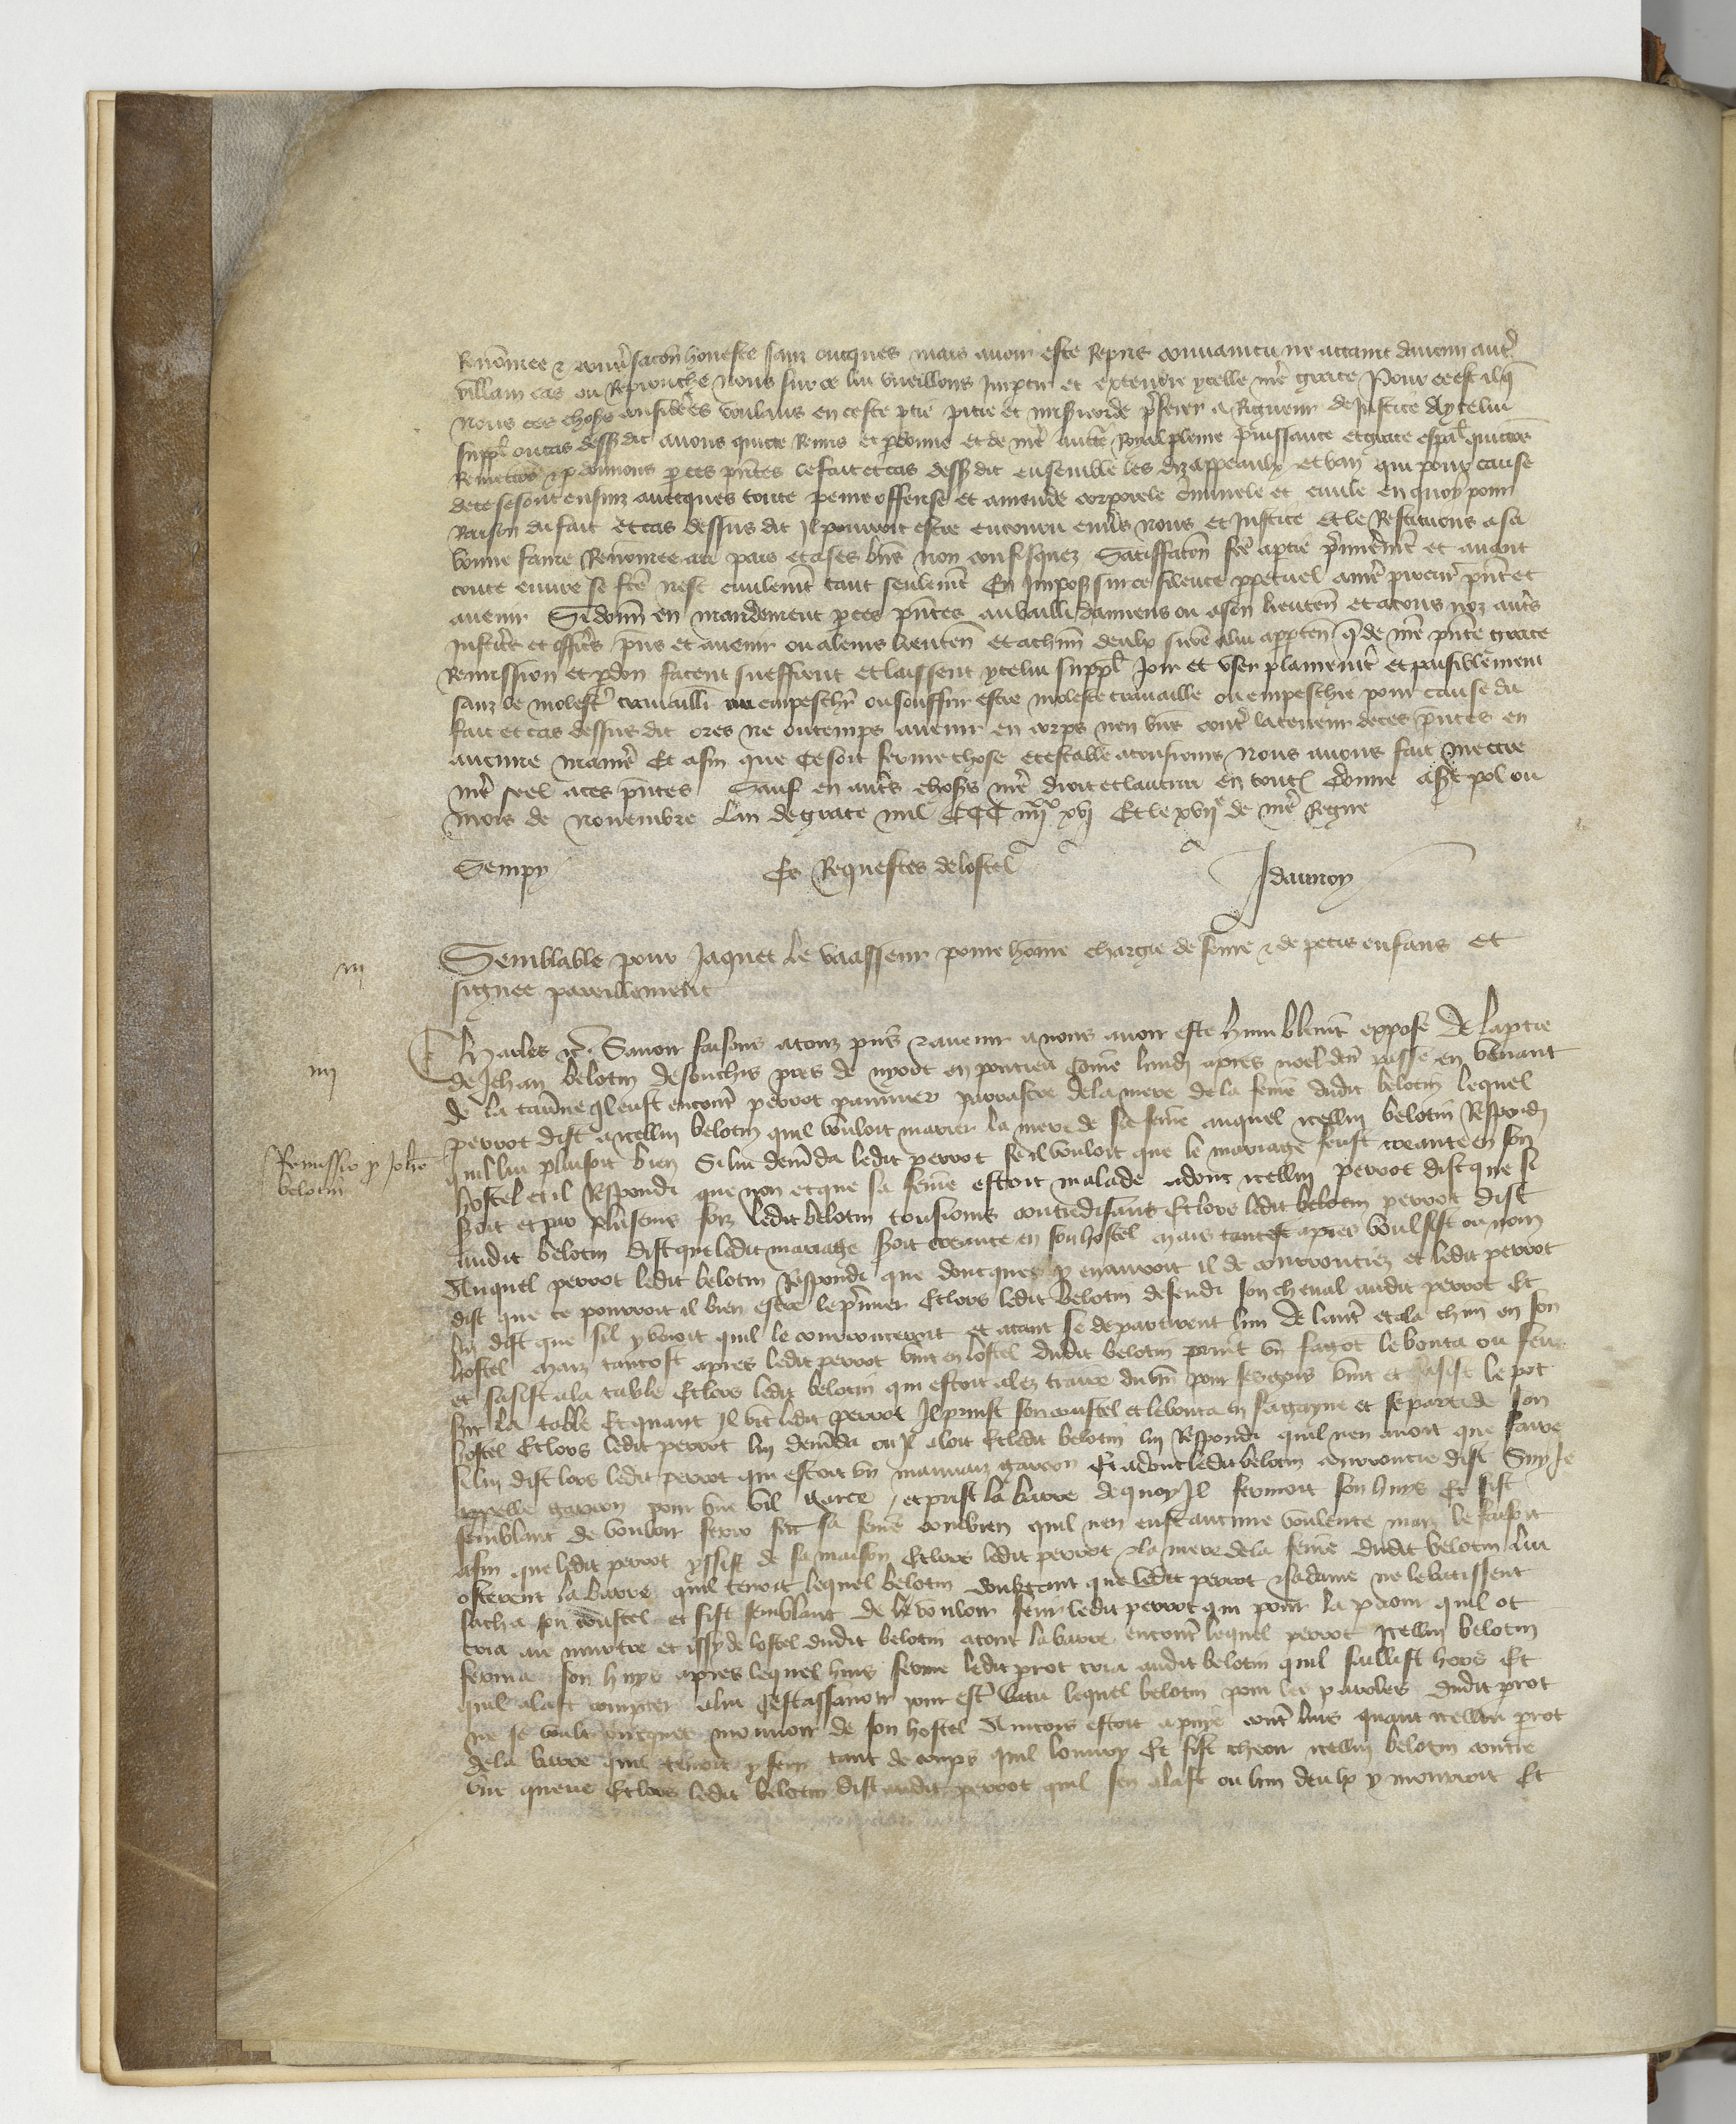 Renomee & conv̾sacōn honeste sanz oncques mais avoir este Repris convaincu ne attaint daucun aut̾
villain cas ou Reprouche nous sur ce lui vueillons Impartir et extendre ycelle nr̄e grace Pour ce est il q̄
Nous ces choses considerees voulans en ceste p̄tie pitie et misericorde p̄ferer a Rigueur de Justice Aycelui
suppl̄ ou cas dess9 dit avons quicte Remis et p̄donne et de nr̄e auct̄e Royal plaine puissance et grace esp̄al quictōs
Remectōs & p̄donnons p̄ ces pn̄tes le fait et cas dess9 dit ensemble les diz appeaulx et ban qui pour cause
de ce se sont ensuiz avecques toute peine offense et amende corporele c̄minele et civile en quoy pour
Raison du fait et cas dessus dit Il pourroit estre encouru env̾s nous et Justice Et le Restituons a sa
bonne fame Renomee au pais et a ses biēs non confisquez Satisffacōn fc̄e a p̄tie p̄mierem̄t et avant
toute euvre se fc̄e nest civilem̄t tant seulem̄t En Imposant sur ce silence p̄petuel a nr̄e procur̾ pn̄t et
avenir Si donn̄ en mandement p̄ ces pn̄tes au bailli damiens ou a son lieuten̄ et a tous noz aut̾s
Justic̾s et offic̾s pn̄s et avenir ou a leurs lieuten̄ et a chūn deulx si cōe a lui app̄ten̄ q̄ de nr̄e pn̄te grace
Remission et p̄don facent sueffrent et laissent ycelui suppl̄ Joir et user plainem̄t et paisiblement
sanz le molest̾ travaillier ne empeschier ou souffrir estre moleste travaillie ou empeschie pour cause du
fait et cas dessus dit ores ne ou temps avenir en corps nen biēs cont̾ la teneur de ces pn̄tes en
aucune manie̾ Et afin que ce soit ferme chose et estable a tousiours Nous avons fait mettre
nr̄e seel a ces pn̄tes Sauf en aut̾s choses nr̄e droit et lautrui en toutes Donne a S̄t pol ou
mois de Novembre Lan de grace mil CCC iiiixx xvj Et le xvije de nr̄e Regne
Sempy Es Requestes de lostel J daunoy
iij
Semblable pour Jaquet Le vasseur povre hōme chargie de fēme & de petis enfans Et
signee pareillement
iiij
Charles &c̄ Savoir faisons a touz pn̄s & avenir a nous avoir este humblem̄t expose De la p̄tie
de Jehan belotin de souchis pres de en pontieu Cōme lundi apres noel der̄ passe en venant
de la tav̾ne il eust encont̾ perrot parrastre de la mere de la fēme dudit belotin lequel
perrot dist a icellui belotin quil vouloit marier la mere de sa fēme auquel icellui belotin Respondi
Remissio p̄ Joh̄e
belotin
quil lui plaisoit bien Si lui demāda ledit perrot se il vouloit que le mariage feust creante en son
hostel et il Respondi que non et que sa fēme estoit malade adont icellui perrot dist que si
seroit et par pluseurs foiz ledit belotin tousiours contredisant Et lors ledit belotin perrot dist
audit belotin dist que ledit mariage seroit creante en son hostel mais tantost apres voulsist ou non
Auquel perrot ledit belotin Respondi que doncques en auroit il de courrouciez et ledit perrot
dist que ce pourroit il bien estre le p̄mier Et lors ledit belotin defendi son cheval audit perrot Et
lui dist que sil y venoit quil le courrouceroit et atant se departirent lun de laut̾ et ala chūn en son
hostel Maiz tantost apres ledit perrot vint en lostel dudit belotin print un fagot le bouta ou feu
et sasist a la table Et lors ledit belotin qui estoit alez traire du vin pour vint et assist le pot
sur la table Et quant Il vit ledit perrot Il print son coustel et le bouta en sa gayne et se parti de son
hostel Et lors ledit perrot lui demāda ou Il aloit Et ledit belotin lui Respondi quil nen avoit que faire
se lui dist lors ledit perrot qui estoit un mauvaiz garcon Et adont ledit belotin courroucie dist Suy Je
appelle garcon pour une vil garce / et prist la barre de quoy Il fermoit son huys Et fist
semblant de vouloir ferir sur sa fēme combien quil nen eust aucune voulente maiz le faisoit
afin que ledit perrot yssist de sa maison Et lors ledit perrot & la mere de la fēme dudit belotin lui
osterent la barre quil tenoit lequel belotin doubtant que ledit perrot & sa dame ne le batissent
sacha son coustel et fist semblant de le vouloir ferir ledit perrot qui pour la paour quil ot
cria au murtre et yssy de lostel dudit belotin atout la barre encont̾ lequel perrot icellui belotin
ferma son huys apres lequel huis ferme ledit p̄rot cria audit belotin quil saillist hors Et
quil alast compter a lui assavoir pour est̾ batu lequel belotin pour les paroles dudit p̄rot
ne se voult oncques mouvoir de son hostel Aincois estoit apuie cont̾ luis quant icellui p̄rot
de la barre quil tenoit y feri tant de cops quil louvry Et fist cheoir icellui belotin contre
une queue Et lors ledit belotin dist audit perrot quil sen alast ou lun deulx y mourroit Et